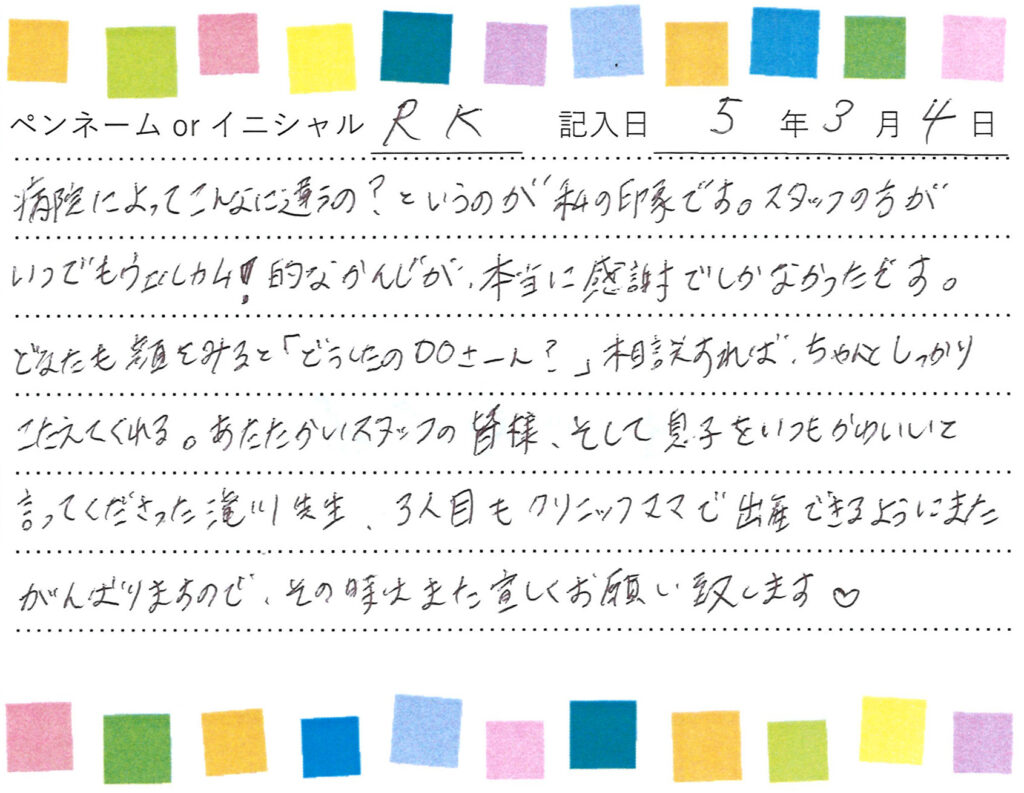 ペンネーム or イニシャル R K 記入日 5 年 3 月 4 日
病院によってこんなに違うの？というのが私の印象です。スタッフの方が
いつでもウェルカム！的なかんじが、本当に感謝でしかなかったです。
どなたも顔をみると「どうしたの〇〇さーん？」相談すれば、ちゃんとしっかり
こたえてくれる。あたたかいスタッフの皆様、そして息子をいつもかわいいと
言ってくださった滝川先生、3人目もクリニックママで出産できるようにまた
がんばりますので、その時はまた宜しくお願い致します♡